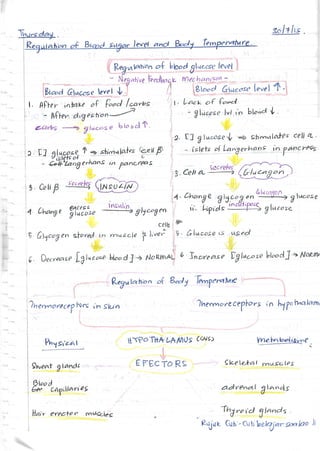 Thursday 20/7/15
Regulation of Blood sugar level and Body Temperature
Regulation of blood glucose level
- Negative Feedback Mechanism -
Blood Glucose level ↓
Blood Glucose level ↑
1. After intake of food / carbs
- After digestion
carbs → glucose blood ↑
2. [] glucose ↑ → stimulates cell β
islets of
Langerhans in pancreas
3. Cell β secretes INSULIN
4 Change excess glucose insulin → glycogen
5 Glycogen stored in muscle & liver cells
6. Decrease [glucose blood] → NORMAL
1. Lack of food
- glucose lvl in blood ↓
2. [] glucose ↓ → stimulates cell α
- islets of Langerhans in pancreas
3. Cell α secretes Glucagon
4. Change glycogen Glucagon → glucose
ii. Lipids → glucose
5. Glucose is used
6 Increase [glucose blood] → NORM
Regulation of Body Temperature
Thermoreceptors in skin
Thermoreceptors in hypothalam
Physical
HYPOTHALAMUS (CNS)
metabolisme
Sweat glands
EFECTORS
Skeletal muscles
Blood
capillaries
adrenal glands
Hair erector muscles
Thyroid glands
Rajek Cuti-Cuti belajar